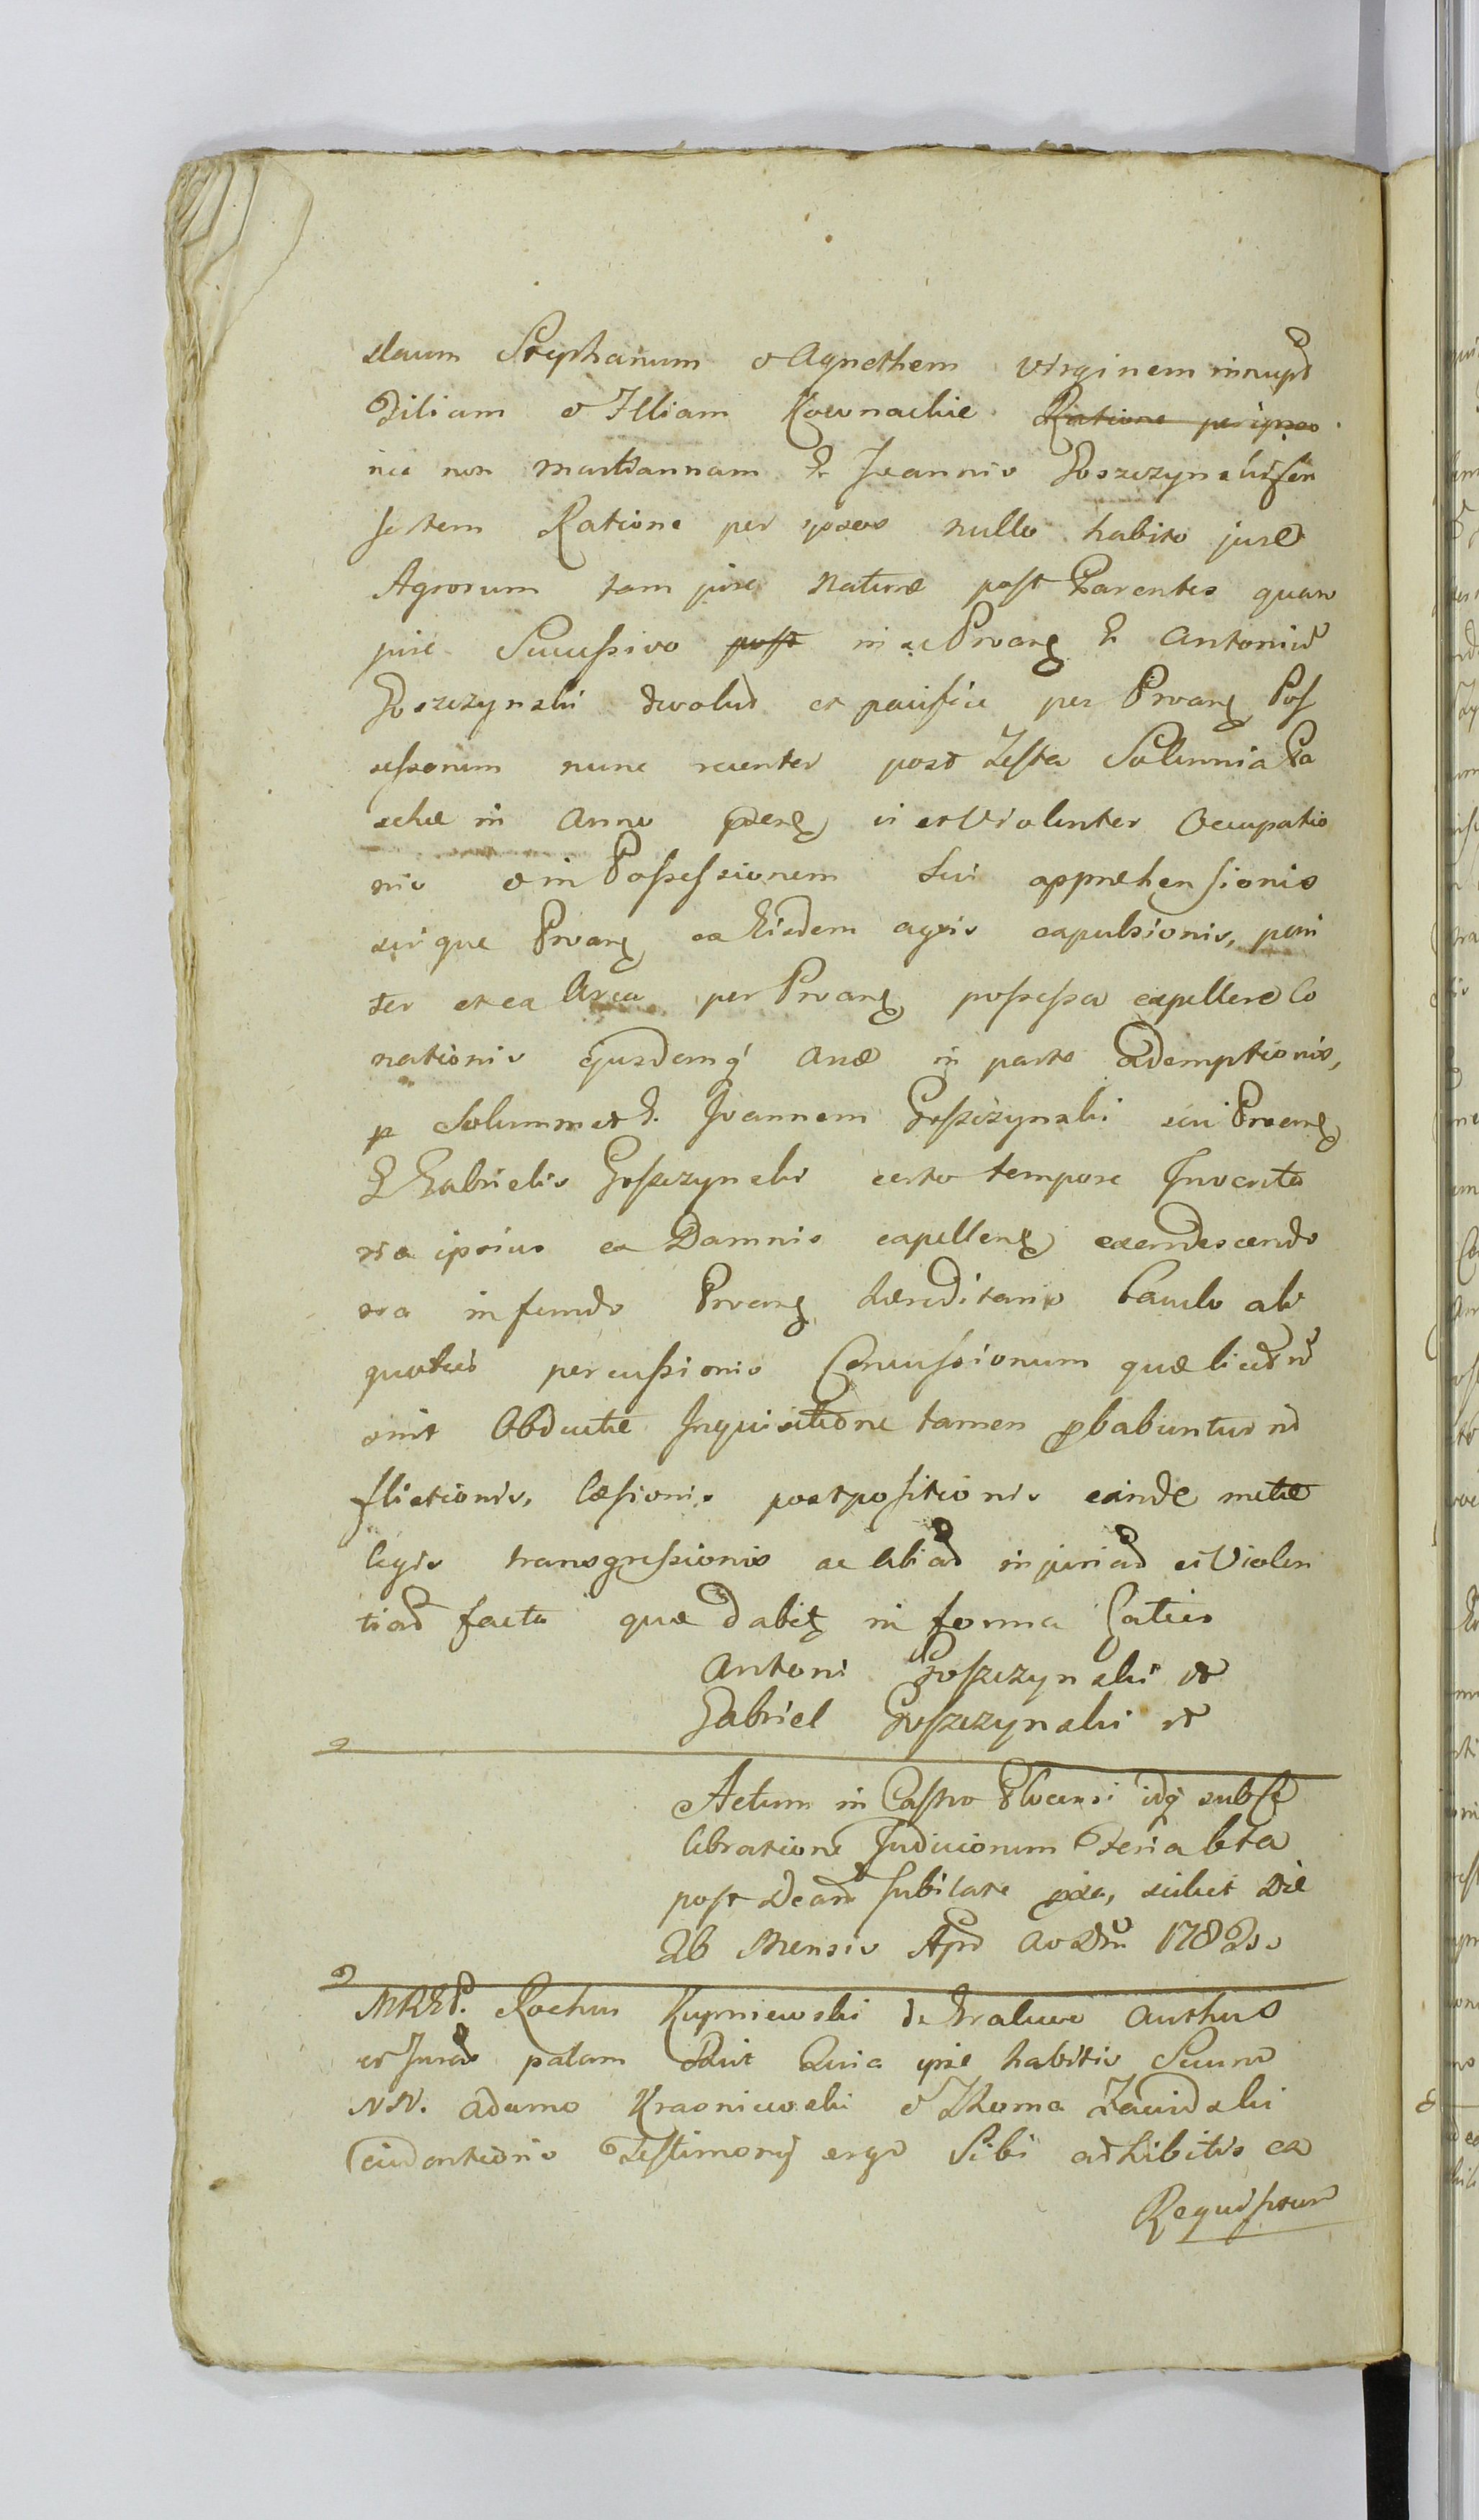 slaum Stephanum & Agnethem Virginem innupt
Filiam & Filiam Kownackie Ratione per ipsos
nec non Mariannam G. Joannis Goszczynski con
sortem Ratione per ipsos nullo habito jure
Agrorum tam jure naturæ post Parentes quam
jure Successivo post in ac Proang G. Antonium
Goszczynski devolut et pacifice per Proang Pos
sessorum nunc recenter post Festa Solennia Pa
schæ in Anno præsng vi et Violenter Occupatio
nis & in Possessionem sui apprehensionis
sui que Proang ex Eisdem agris expulsionis, pari
ter et ex Area per Proang possessa expellere Co
nationis ejusdemq Areæ in parte ademptionis,
p Solummet G. Joannem Goszczynski sui Proang
G Gabrielis Goszczynski certo tempore Invento
ria ipsius ex Damnis expelleng
in fundo Proang hæreditario Baculo ali
quoties percussionis Concussionum quæ licet n
sint Obductæ Inquisitione tamen probabuntur in
flictionis, læsionis postpositionis exinde metæ
legis transgressionis ac aliad injuriad et Violen
tiad facta quæ dabit in forma Latius
Antoni Goszczynski
Gabriel Goszczynski
Actum in Castro Plocensi idq sub Ce
lebratione Judiciorum Feria 6ta
post Dcam Jubilate pxa, scilicet Die
26 Mensis Apr Ao Dni 1782do
MREP. Rochus Kupniewski de Authus
et Jurad palam Quia ipse habitis Secum
NN. Adamo Krasniewski & Thoma Zawidzki
Testimonij ergo Sibi adhibitis ex
Requisitione